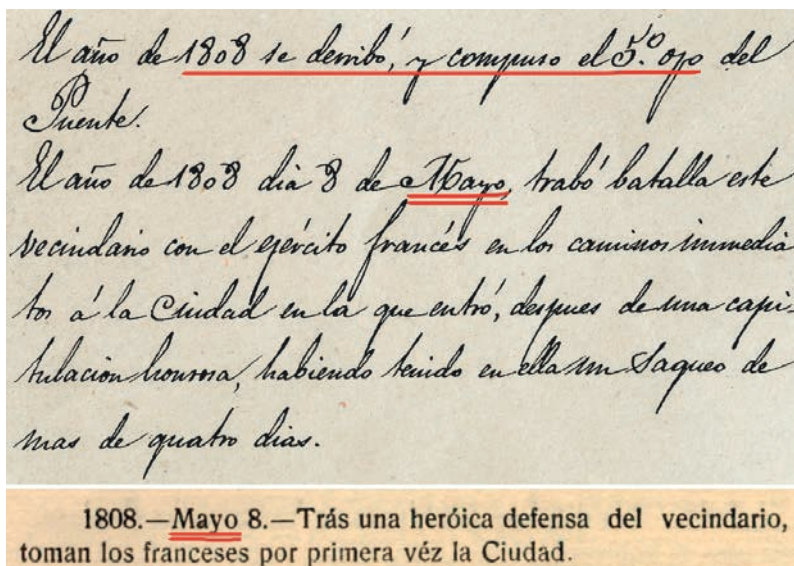 El año de 1808 se derribó, y compuso el 5.º ojo del
Puente.
El año de 1808 dia 8 de Mayo, trabó batalla este
vecindario con el ejército francés en los caminos immedia
tos á la Ciudad en la que entró, despues de una capi-
tulacion honrosa, habiendo tenido en ella un Saqueo de
mas de quatro dias.
1808.—Mayo 8.—Trás una heróica defensa del vecindario,
toman los franceses por primera véz la Ciudad.